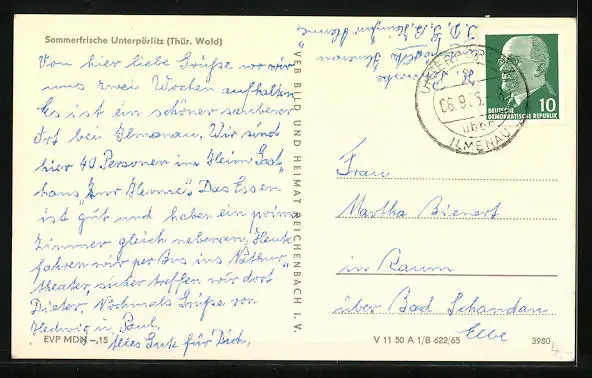 Sommerfrische Unterpörlitz (Thür. Wald)
Von hier liebe Grüße wo wir
uns zwei Wochen aufhalten.
Es ist ein schöner sauberer
Ort bei Ilmenau. Wir sind
hier 40 Personen im Heim Gast-
haus "Zur Henne". Das Essen
ist gut und haben ein prima
Zimmer gleich nebenan. Heute
fahren wir per Bus ins Natur-
theater, sicher treffen wir dort
Dieter. Nochmals Grüße von
Hedwig u. Paul.
Alles Gute für Dich.
EVP MDN –,15
VEB BILD UND HEIMAT REICHENBACH I. V.
06.9.
über
ILMENAU
10
DEUTSCHE
DEMOKRATISCHE REPUBLIK
Frau
Martha Bienert
in Raum
über Bad Schandau
Elbe
V 11 50 A 1/B 622/65
3980
4,-